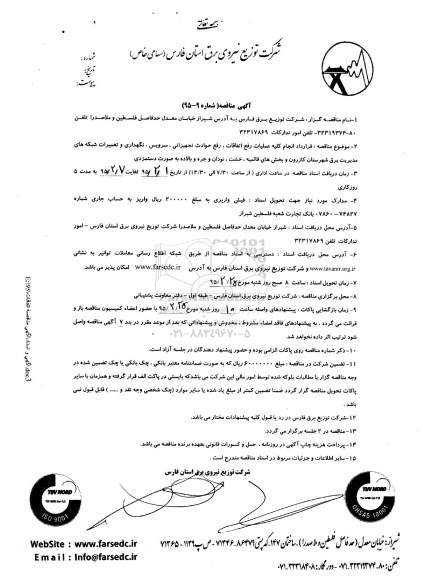 بسمه تعالی
شرکت توزیع نیروی برق استان فارس (سهامی خاص)
شماره:
تاریخ:
پیوست:
آگهی مناقصه( شماره ۹-۹۵)
۱-نام مناقصه گزار : شرکت توزیع برق فارس به آدرس شیراز خیابان معدل حدفاصل فلسطین و ملاصدرا تلفن
۸۰-۳۲۳۱۹۳۷۴- تلفن امور تدارکات ۳۲۳۱۷۸۶۹
۲- موضوع مناقصه : قرارداد انجام کلیه عملیات رفع اتفاقات ، رفع حوادث تجهیزاتی ، سرویس ، نگهداری و تعمیرات شبکه های
مدیریت برق شهرستان کازرون و بخش های قائمیه ، خشت ، نودان و جره و بالاده به صورت دستمزدی
۳- زمان دریافت اسناد مناقصه: در ساعت اداری ( از ساعت ۷/۳۰ الی ۱۴/۳۰) از تاریخ ۹۵/۲/۱ لغایت ۹۵/۲/۷ به مدت ۵
روزکاری
۴- مدارک مورد نیاز جهت تحویل اسناد : فیش واریزی به مبلغ ۲۰۰۰۰۰ ریال واریز به حساب جاری شماره
۷۴۸۲۷-۰۷۸۶۰ بانک تجارت شعبه فلسطین شیراز
۵-آدرس محل دریافت اسناد : شیراز خیابان معدل حدفاصل فلسطین و ملاصدرا شرکت توزیع نیروی برق استان فارس – امور
تدارکات تلفن ۳۲۳۱۷۸۶۹
۶- آدرس محل دریافت اسناد : دسترسی به اسناد مناقصه از طریق شبکه اطلاع رسانی معاملات توانیر به نشانی
www.tavanir.org.ir و شرکت توزیع نیروی برق استان فارس به آدرس www.farsedc.ir امکان پذیر می باشد.
۷- زمان تحویل اسناد : ساعت ۸ صبح روز شنبه مورخ ۹۵/۲/۲۵
۸- محل برگزاری مناقصه : شرکت توزیع نیروی برق استان فارس – طبقه اول – دفتر معاونت پشتیبانی
۹- زمان بازگشایی پاکات : پیشنهادهای واصله ساعت ۱۰ روز شنبه مورخ ۹۵/۲/۲۵ با حضور اعضاء کمیسیون مناقصه باز و
قرائت می گردد . به پیشنهادهای فاقد امضاء مشروط ، مخدوش و پیشنهاداتی که بعد از موعد مقرر در بند ۷ آگهی مناقصه واصل
شود ترتیب اثر داده نخواهد شد.
۱۰- ذکر شماره مناقصه روی پاکات الزامی بوده و حضور پیشنهاد دهندگان در جلسه آزاد است.
۱۱- تضمین شرکت در مناقصه : مبلغ ۶۰۰۰۰۰۰۰۰ ریال که به صورت ضمانتنامه معتبر بانکی ، چک بانکی یا چک تضمین شده در
وجه مناقصه گزار یا مطالبات بلوکه شده توسط امور مالی این شرکت می باشدکه بایستی در پاکت الف قرار گرفته و همزمان با سایر
پاکات تحویل مناقصه گزار گردد ضمنا تضمین کمتر از مبلغ یاد شده یا سایر موارد (چک شخصی وجه نقد و ..... ) قابل قبول نمی
باشد.
۱۲-شرکت توزیع برق فارس در رد یا قبول کلیه پیشنهادات مختار می باشد.
۱۳-مناقصه در ۲ جلسه برگزار می گردد.
۱۴-پرداخت هزینه چاپ آگهی در روزنامه ، حمل و کسورات قانونی بعهده برنده مناقصه می باشد.
۱۵-سایر اطلاعات و جزئیات مربوط در اسناد مناقصه مندرج است .
شرکت توزیع نیروی برق استان فارس
۰۲۱-۸۸۳۴۹۶۷۰-۵
TUV NORD
ISO 9001
TUV NORD
OHSAS 18001
WebSite : www.farsedc.ir
Email : Info@farsedc.ir
شیراز: خیابان معدل (حدفاصل فلسطین و ملاصدرا) ، ساختمان ۱۴۷ کدپستی ۸۶۴۷۱-۷۱۳۴۶ - ص پ ۱۱۳۹-۷۱۳۶۵
تلفن: ۸۰-۳۲۳۱۹۳۷۴-۰۷۱ - دورنگار: ۳۲۳۱۸۴۰۸-۰۷۱